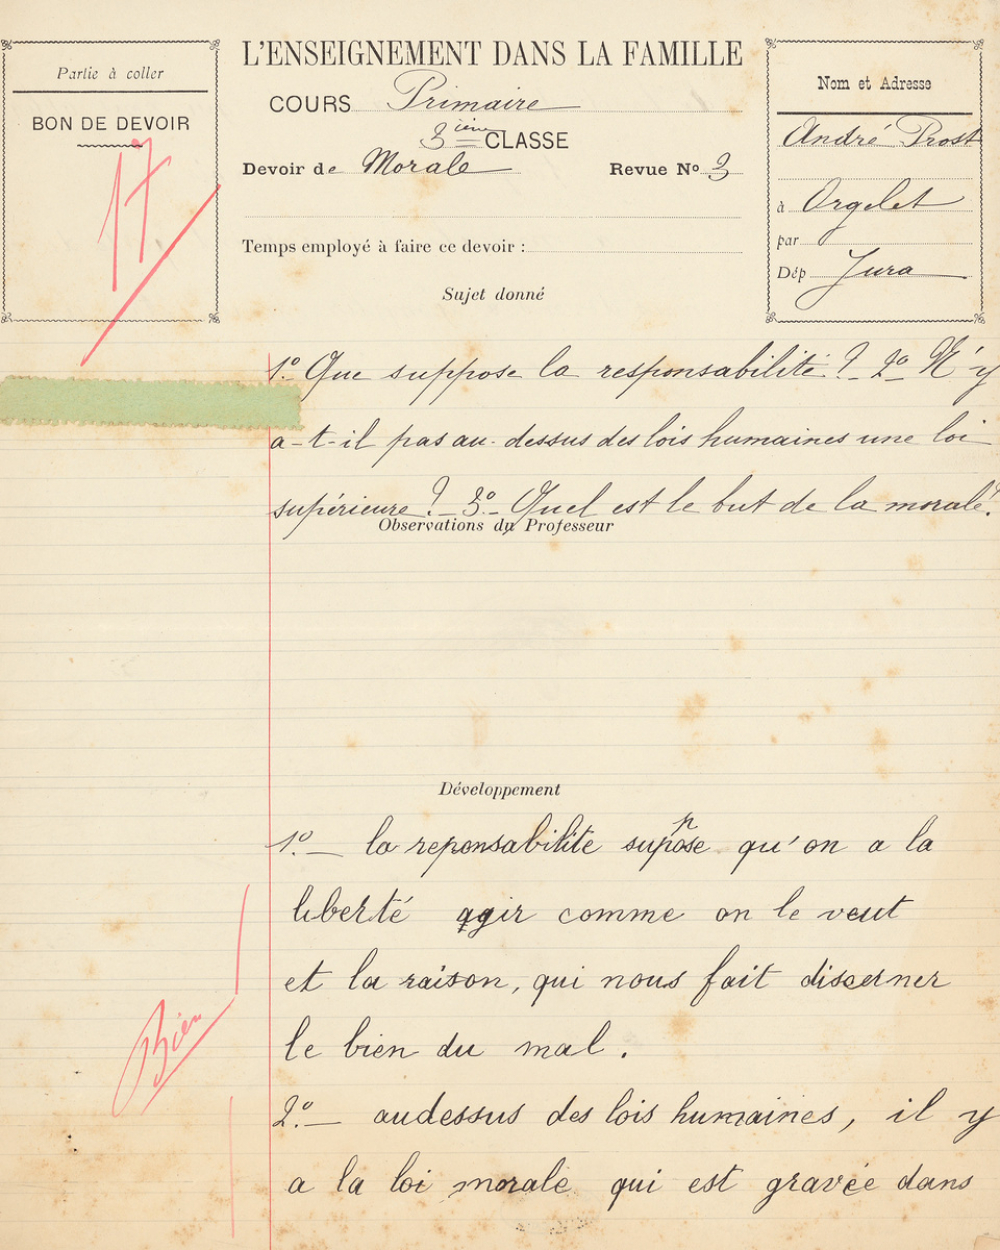 Partie à coller
BON DE DEVOIR
17
L'ENSEIGNEMENT DANS LA FAMILLE
COURS Primaire
3ième CLASSE
Devoir de Morale
Revue No 3
Temps employé à faire ce devoir :
Nom et Adresse
André Prost
à Orgelet
par
Dép Jura
Sujet donné
1o Que suppose la responsabilité ? _ 2o N'y
a-t-il pas au-dessus des lois humaines une loi
supérieure ? _ 3o _ Quel est le but de la morale ?
Observations du Professeur
Développement
1o _ la reponsabilité suppose qu'on a la
liberté agir comme on le veut
et la raison, qui nous fait discerner
le bien du mal.
Bien
2o _ audessus des lois humaines, il y
a la loi morale qui est gravée dans